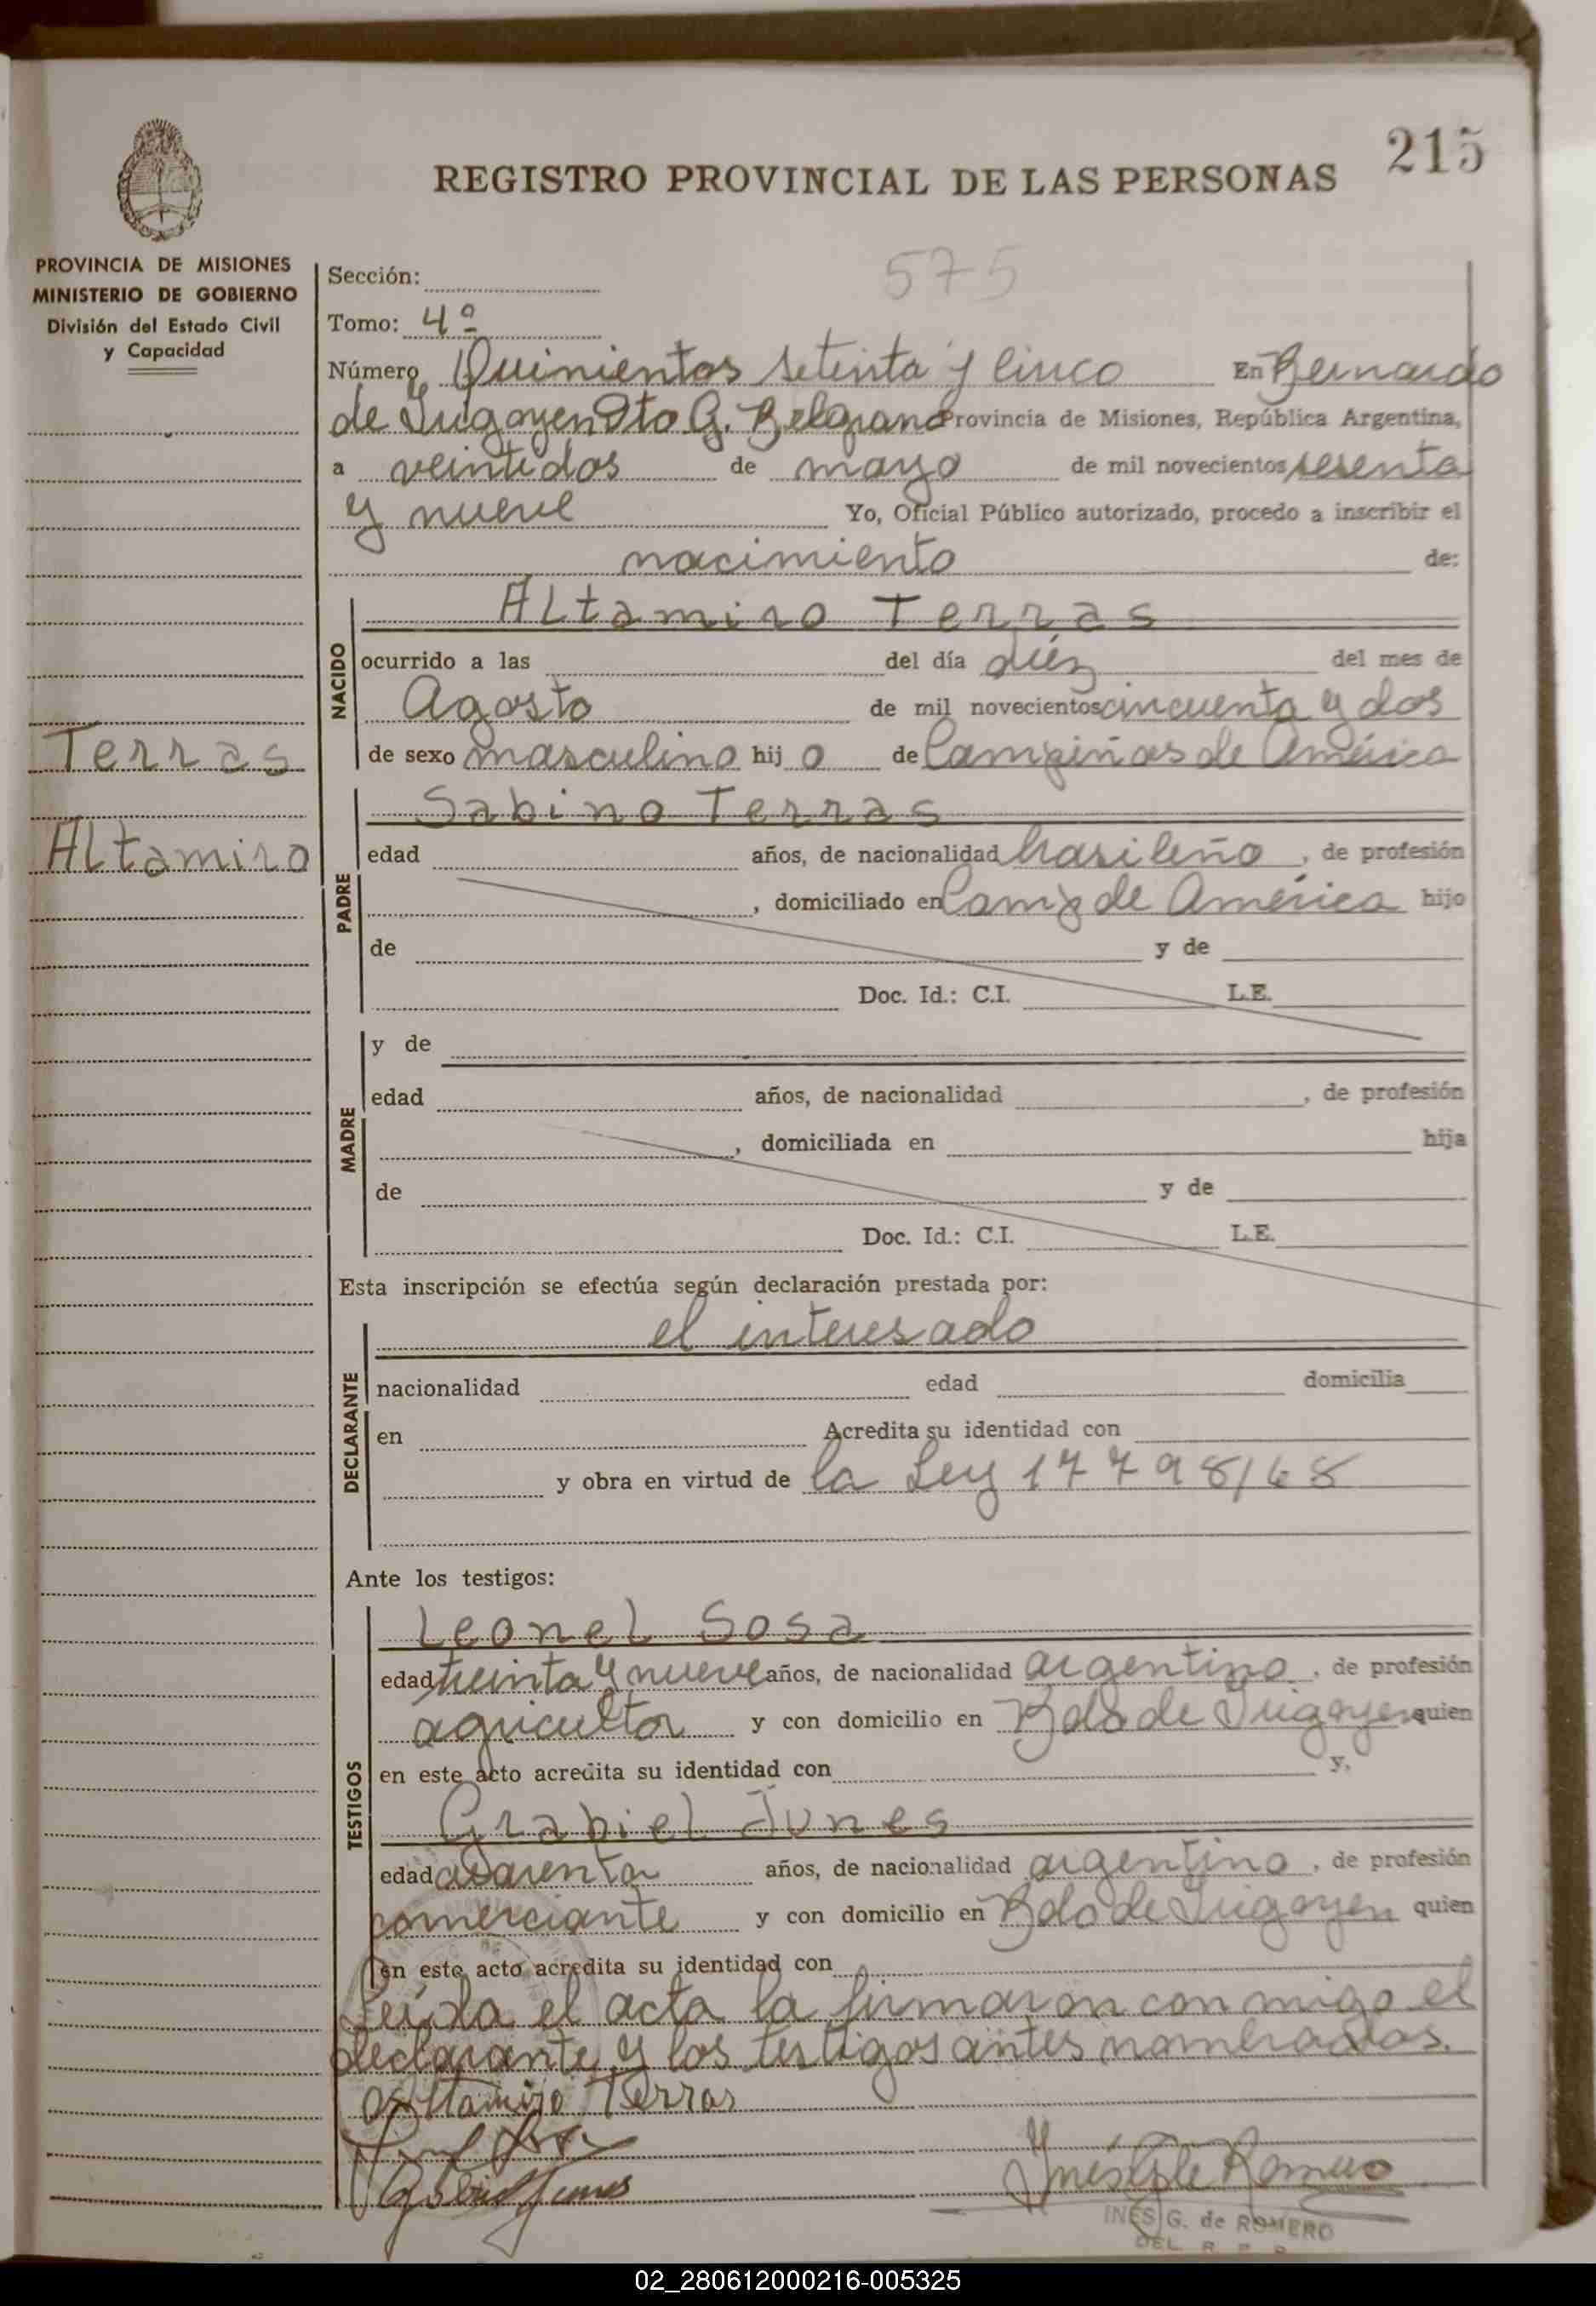 215
REGISTRO PROVINCIAL DE LAS PERSONAS
PROVINCIA DE MISIONES
MINISTERIO DE GOBIERNO
División del Estado Civil
y Capacidad
Terras
Altamiro
575
Sección:
Tomo: 4º
Número Quinientos setenta y cinco En Bernardo
de Irigoyen Dto G. Belgrano Provincia de Misiones, República Argentina,
a veintidos de mayo de mil novecientos sesenta
y nueve Yo, Oficial Público autorizado, procedo a inscribir el
nacimiento de:
NACIDO
Altamiro Terras
ocurrido a las del día diéz del mes de
Agosto de mil novecientos cincuenta y dos
de sexo masculino hij o de Campiñas de América
PADRE
Sabino Terras
edad años, de nacionalidad brasileño, de profesión
, domiciliado en Camp de América hijo
de y de
Doc. Id.: C.I. L.E.
MADRE
y de
edad años, de nacionalidad , de profesión
, domiciliada en hija
de y de
Doc. Id.: C.I. L.E.
Esta inscripción se efectúa según declaración prestada por:
DECLARANTE
el interesado
nacionalidad edad domicilia
en Acredita su identidad con
y obra en virtud de la Ley 17798/68
Ante los testigos:
TESTIGOS
Leonel Sosa
edad treinta y nueve años, de nacionalidad argentino, de profesión
agricultor y con domicilio en Bdo de Irigoyen quien
en este acto acredita su identidad con y,
Grabiel Junes
edad cuarenta años, de nacionalidad argentino, de profesión
comerciante y con domicilio en Bdo de Irigoyen quien
en este acto acredita su identidad con
Leída el acta la firmaron con migo el
declarante y los testigos antes nombrados.
Altamiro Terras
Gabriel Junes
Inés G de Romero
INES G. de ROMERO
DEL. R. P. P.
02_280612000216-005325